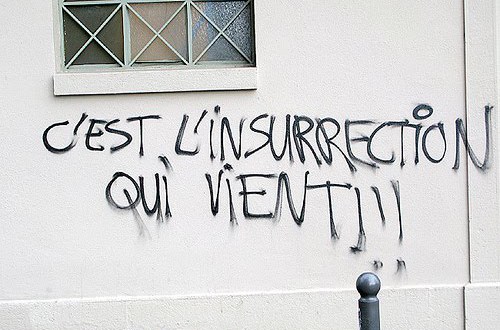 C'EST L'iNSURRECTiON
QUi ViENT!!!